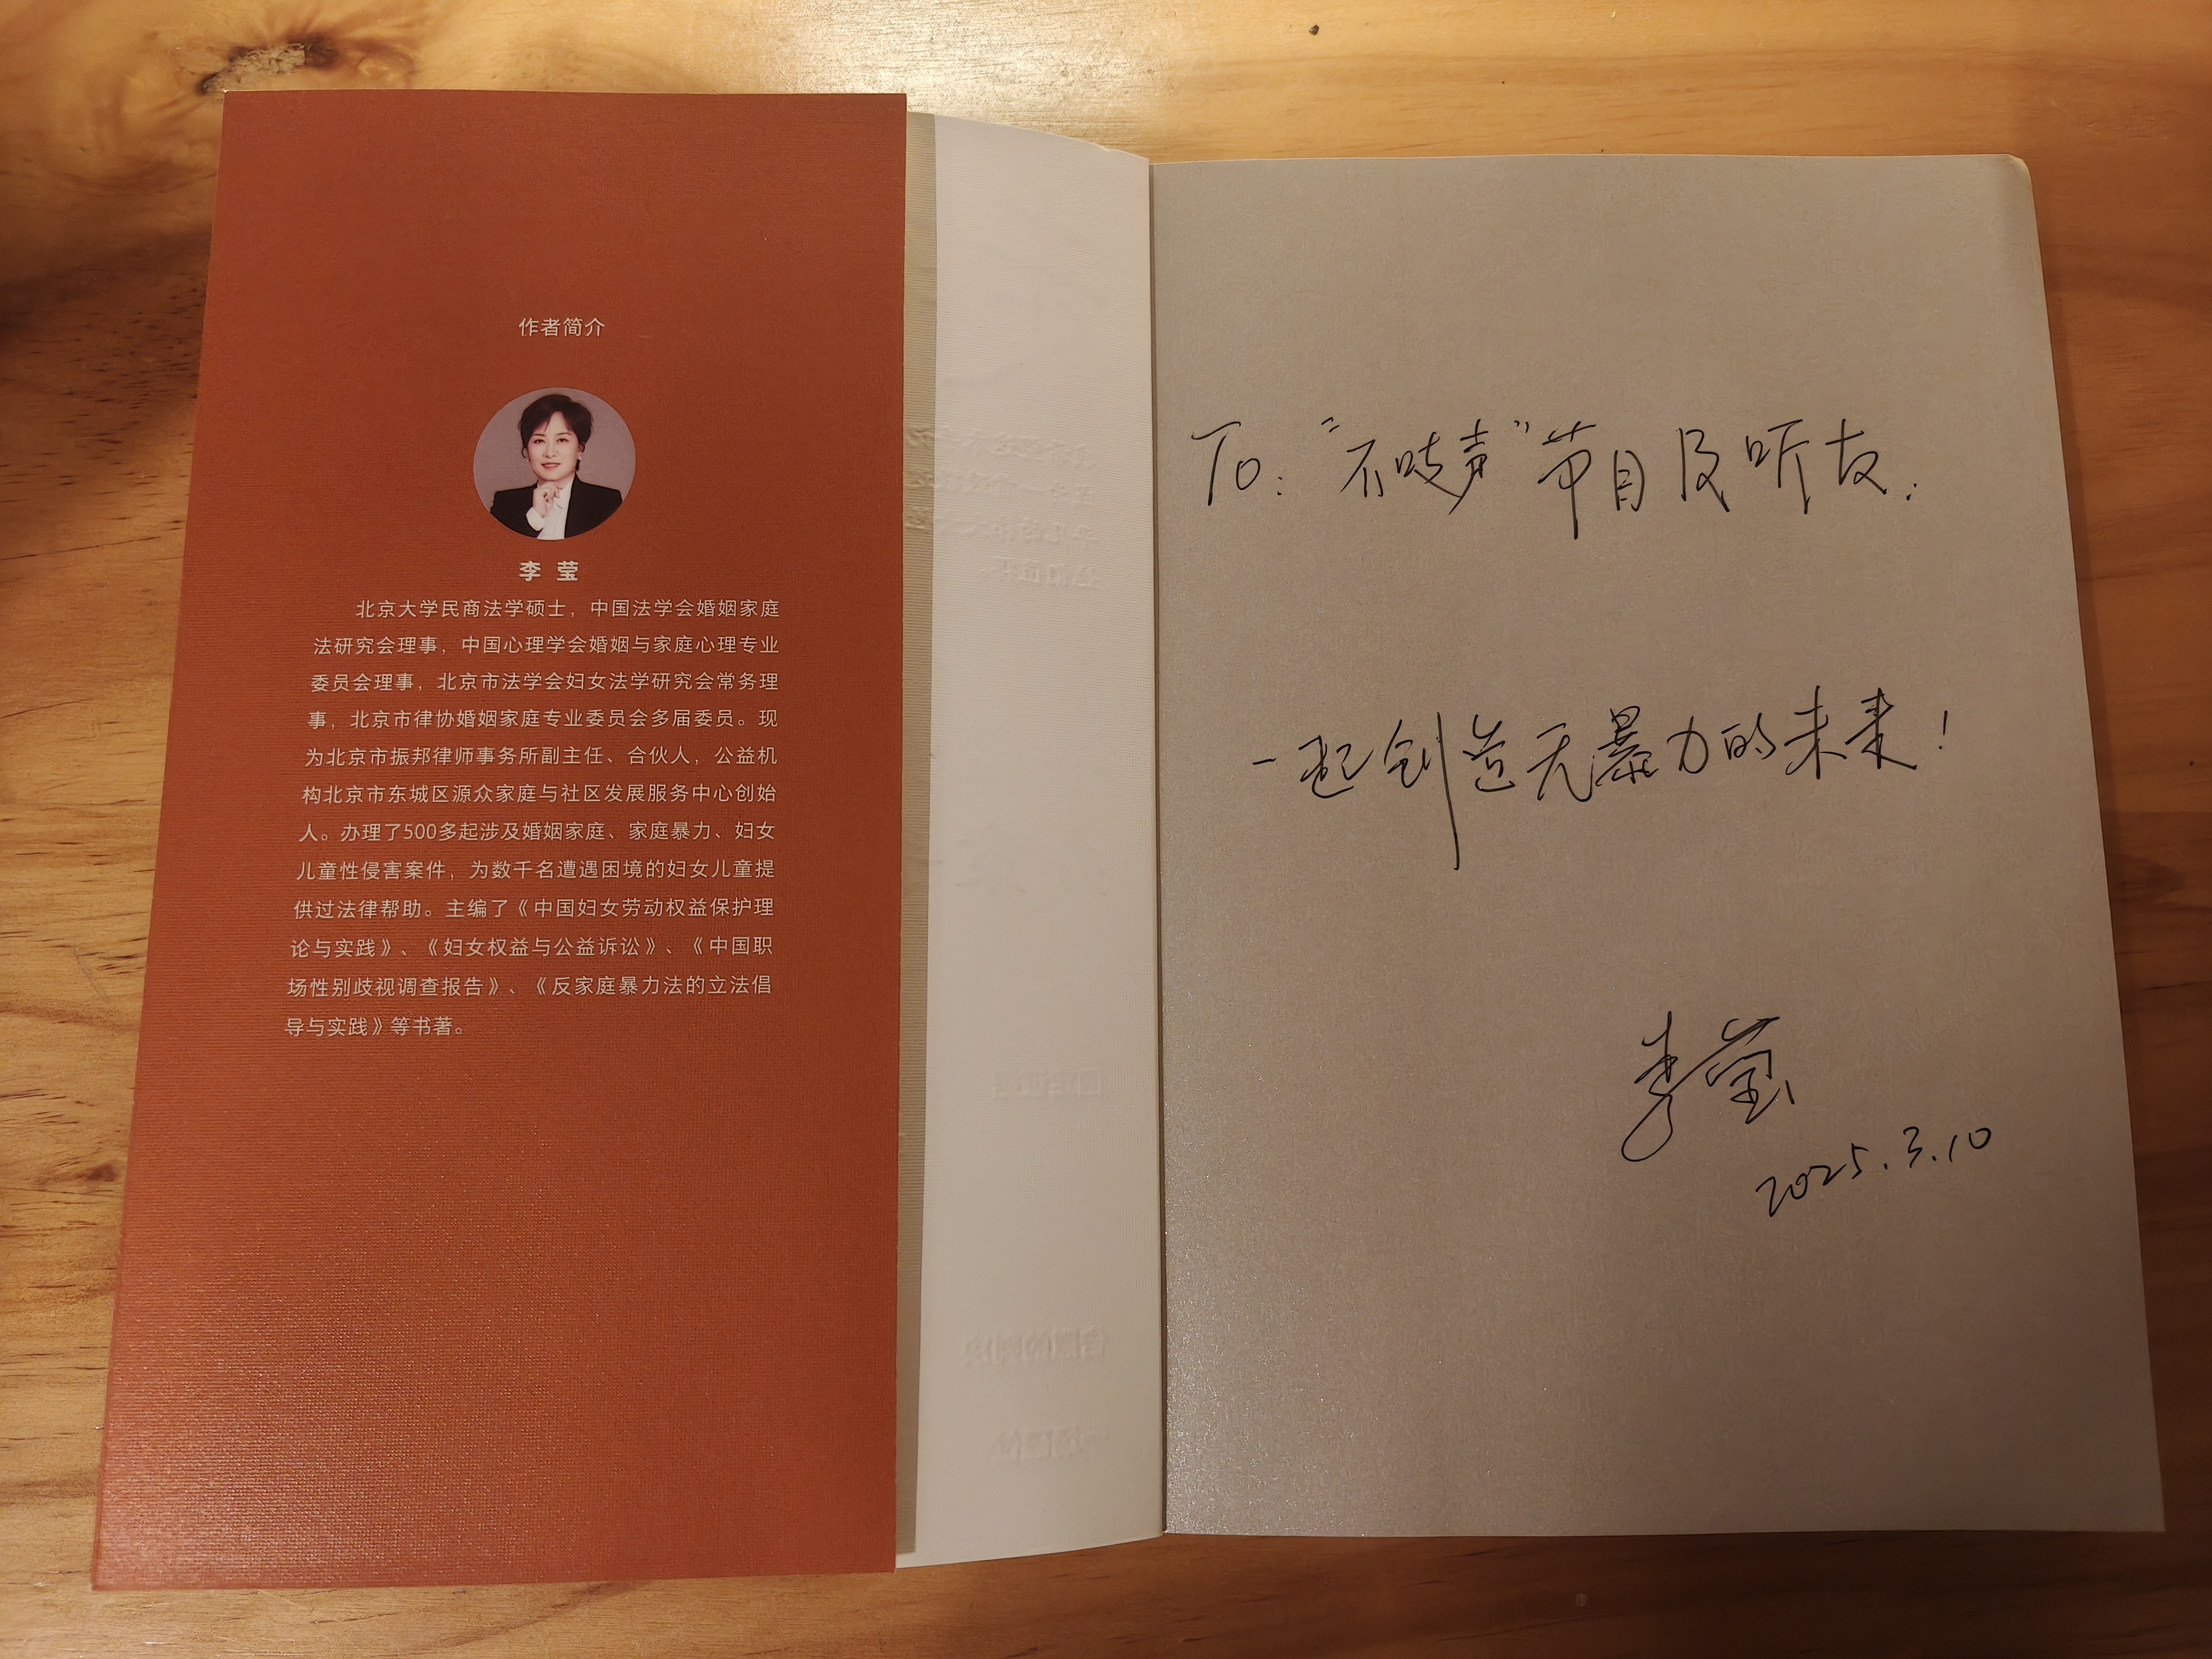 作者简介
李 莹
北京大学民商法学硕士，中国法学会婚姻家庭
法研究会理事，中国心理学会婚姻与家庭心理专业
委员会理事，北京市法学会妇女法学研究会常务理
事，北京市律协婚姻家庭专业委员会多届委员。现
为北京市振邦律师事务所副主任、合伙人，公益机
构北京市东城区源众家庭与社区发展服务中心创始
人。办理了500多起涉及婚姻家庭、家庭暴力、妇女
儿童性侵害案件，为数千名遭遇困境的妇女儿童提
供过法律帮助。主编了《中国妇女劳动权益保护理
论与实践》、《妇女权益与公益诉讼》、《中国职
场性别歧视调查报告》、《反家庭暴力法的立法倡
导与实践》等书著。
To: "不吱声"节目及听友:
一起创造无暴力的未来!
李莹
2025.3.10